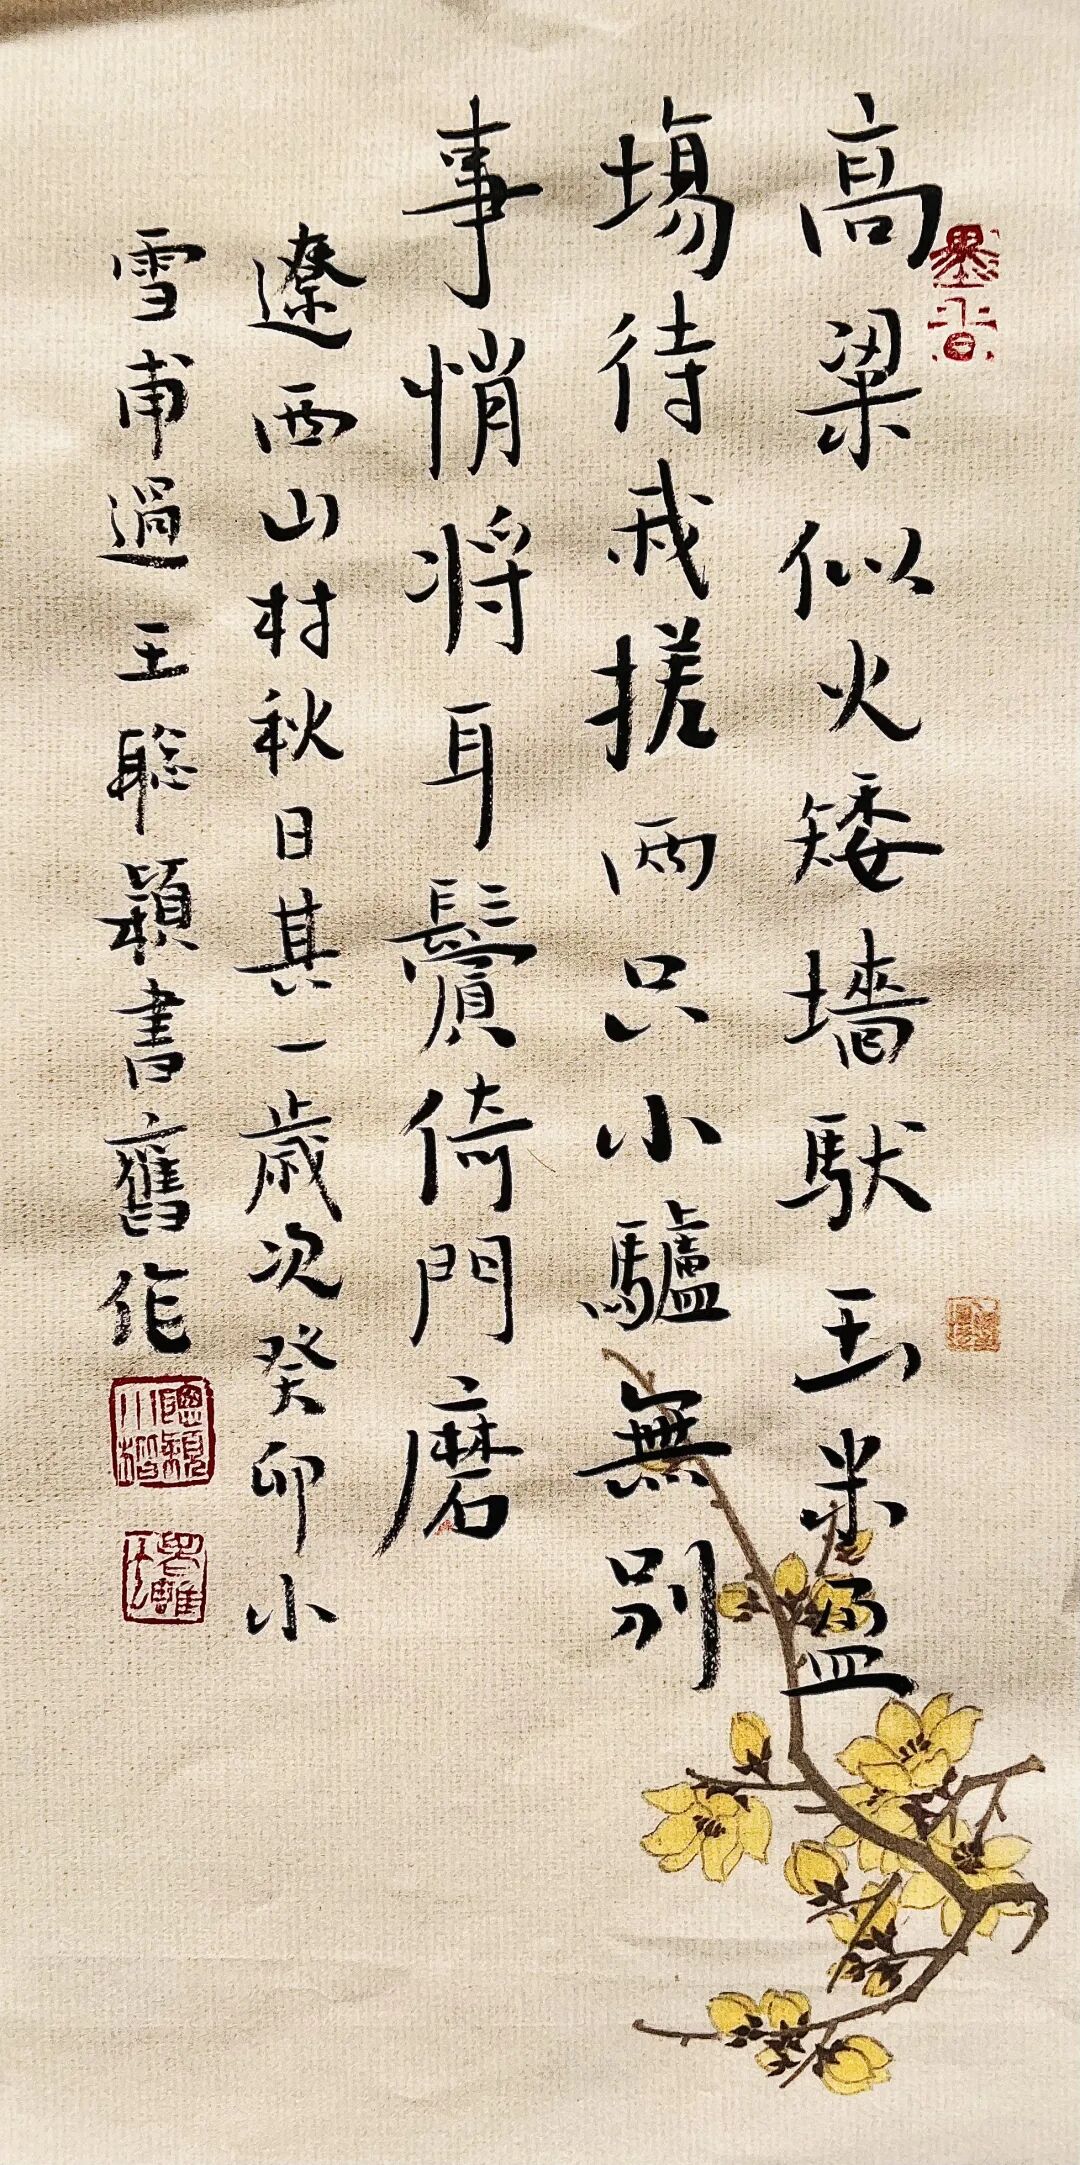 高粱似火矮墙馱玉米盈
場待戒搓兩只小驢無別
事悄将耳鬢倚門磨
遼西山村秋日其一歳次癸卯小
雪甫過王聡穎書舊作
墨香